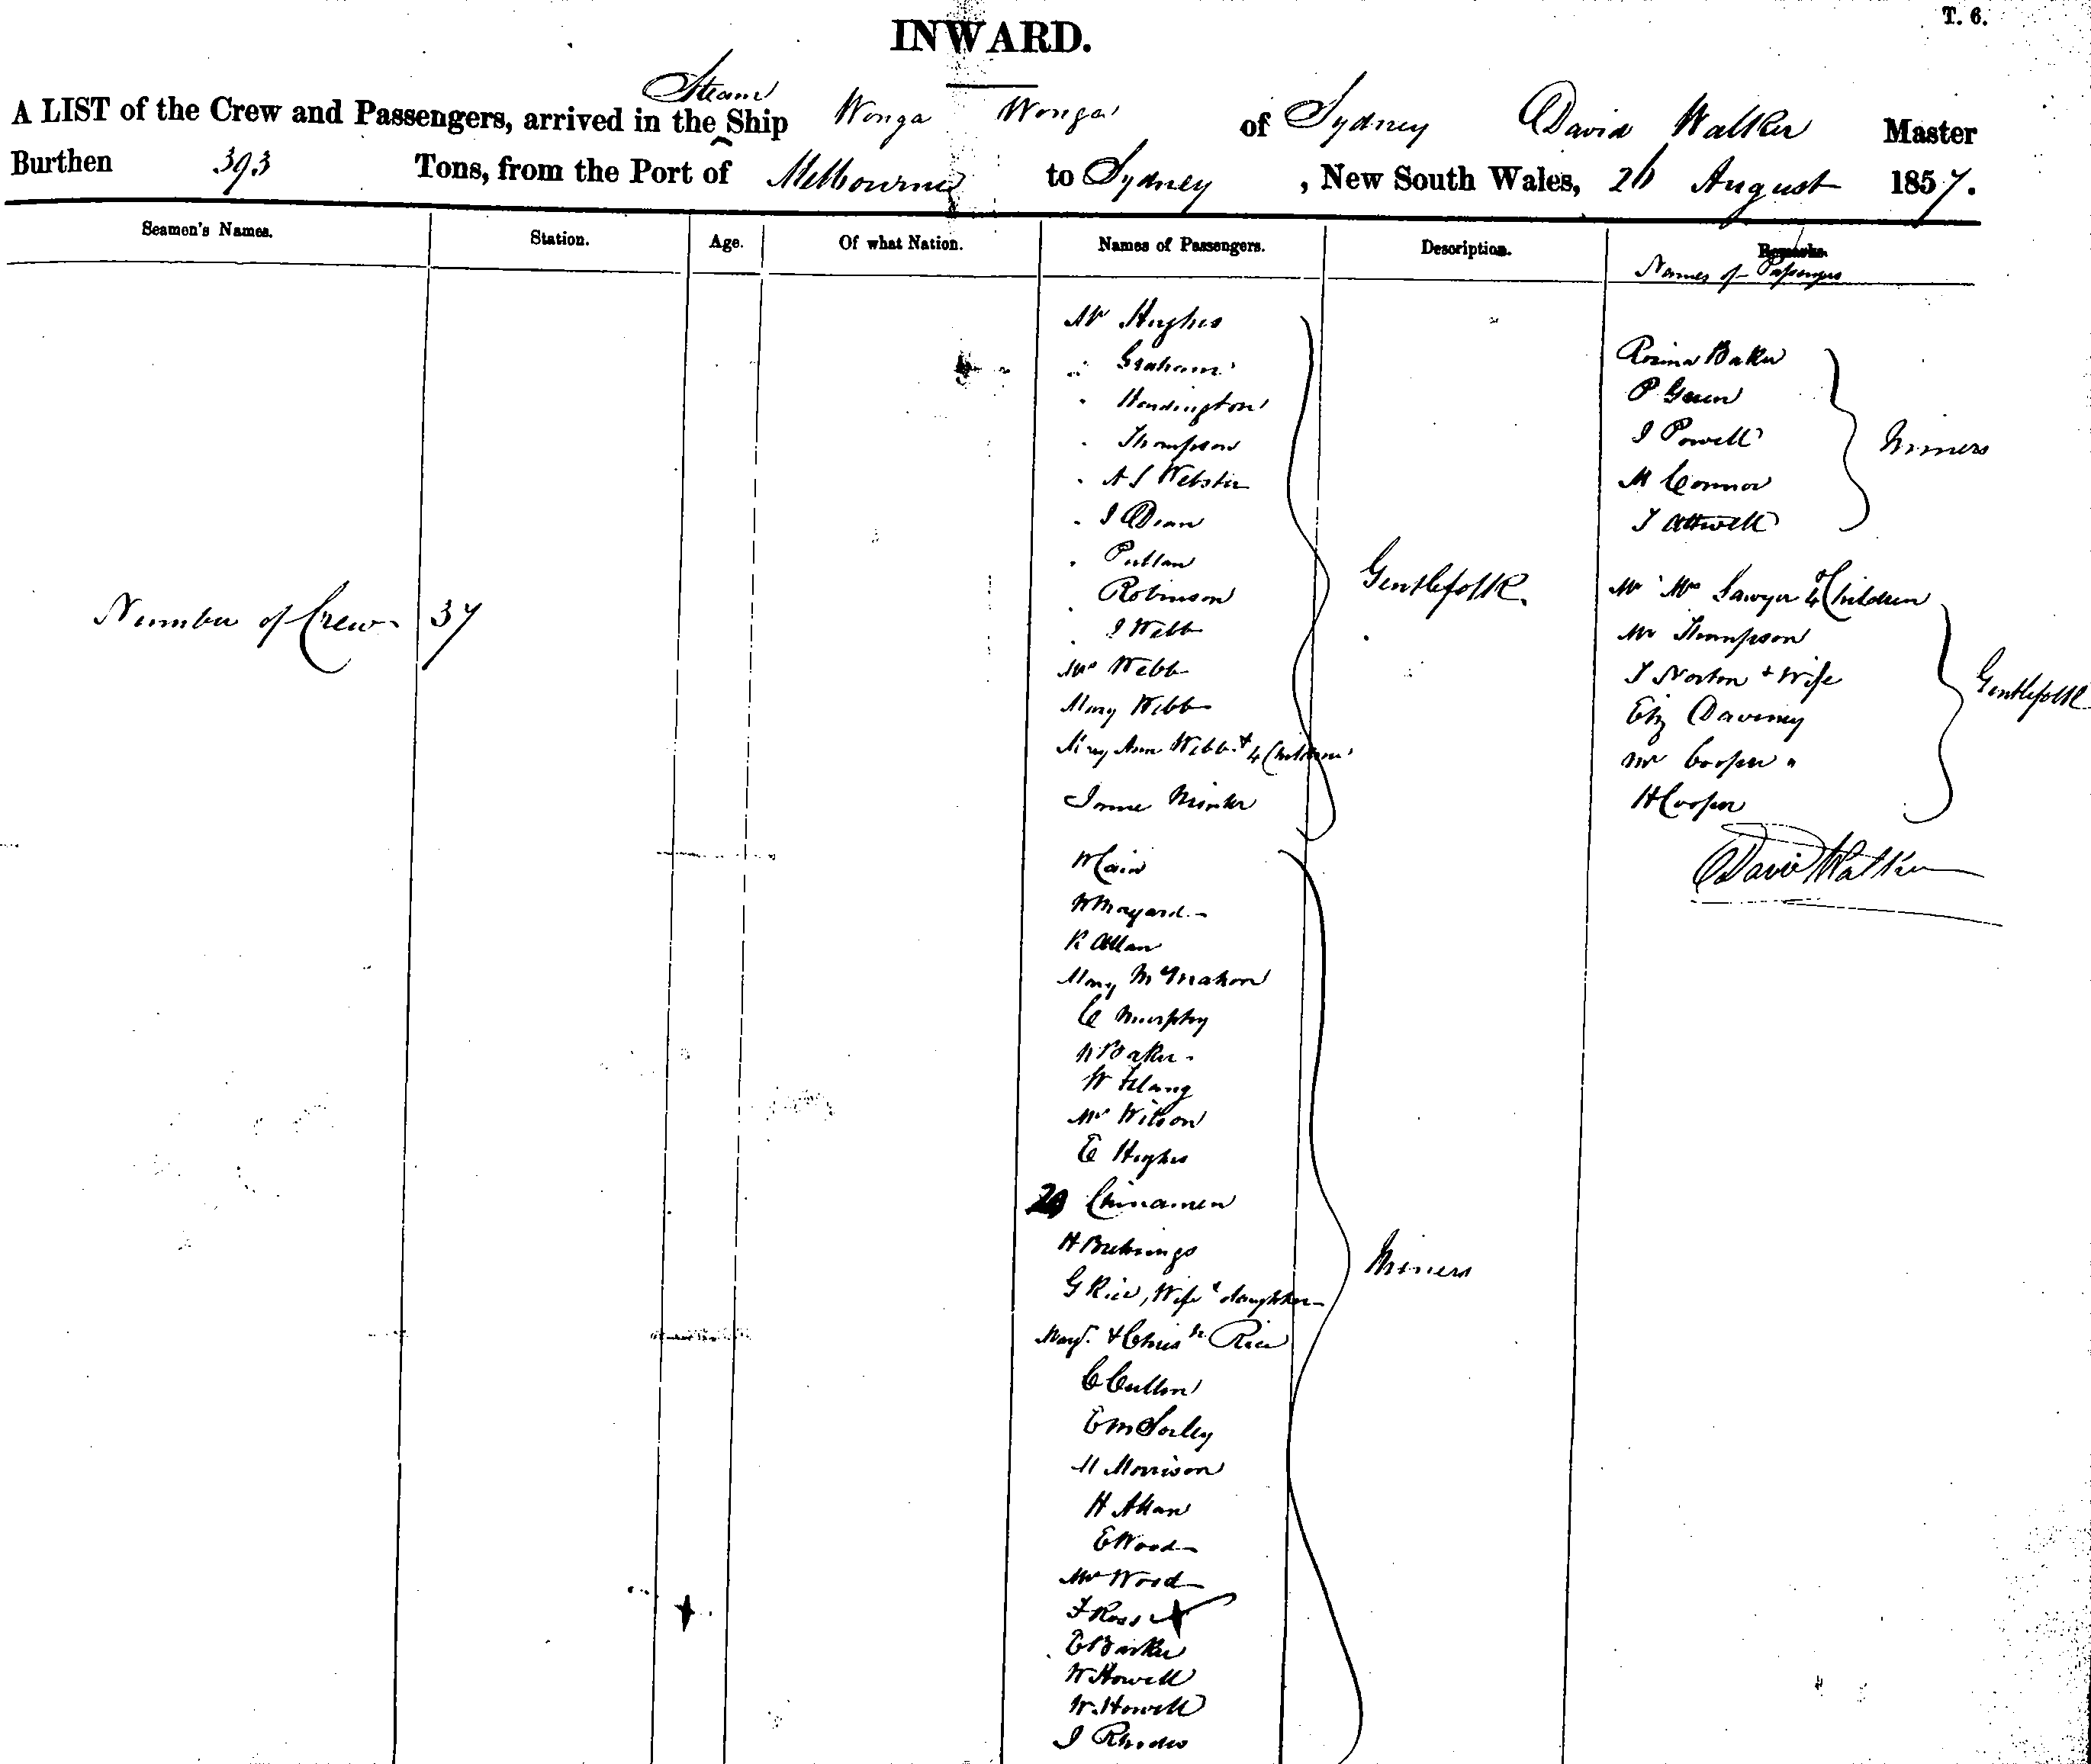 T. 6.
INWARD.
A LIST of the Crew and Passengers, arrived in the Steam Ship Wonga Wonga of Sydney David Walker Master
Burthen 393 Tons, from the Port of Melbourne to Sydney, New South Wales, 26 August 1857.
Seamen's Names. Station. Age. Of what Nation. Names of Passengers. Description. Remarks.
Names of Passengers
Number of Crew 37
Mr Hughes
" Graham
Thompson
A S Webster
J Dean
Robinson
J Webb
Mrs Webb
Mary Webb
Mary Ann Webb & 4 Children
Gentlefolk.
W Cain
W Mayard
R Allan
Mary McMahon
C Murphy
W Baker
Mr Wilson
E Hughes
Chinamen
G Rice, Wife & daughter
Margt & Chisn Rice
C Cullen
E McSorley
M Morrison
H Allan
E Wood
Mr Wood
F Ross
E Barker
W Howell
W. Howell
J Rhodes
Miners
Rosina Baker
P Green
J Powell
M Connor
T Attwell
Miners
Mr Mrs Sawyer & 4 Children
Mr Thompson
J Norton + Wife
Eliz Daveney
Mr Cooper "
H Cooper
Gentlefolk
David Walker